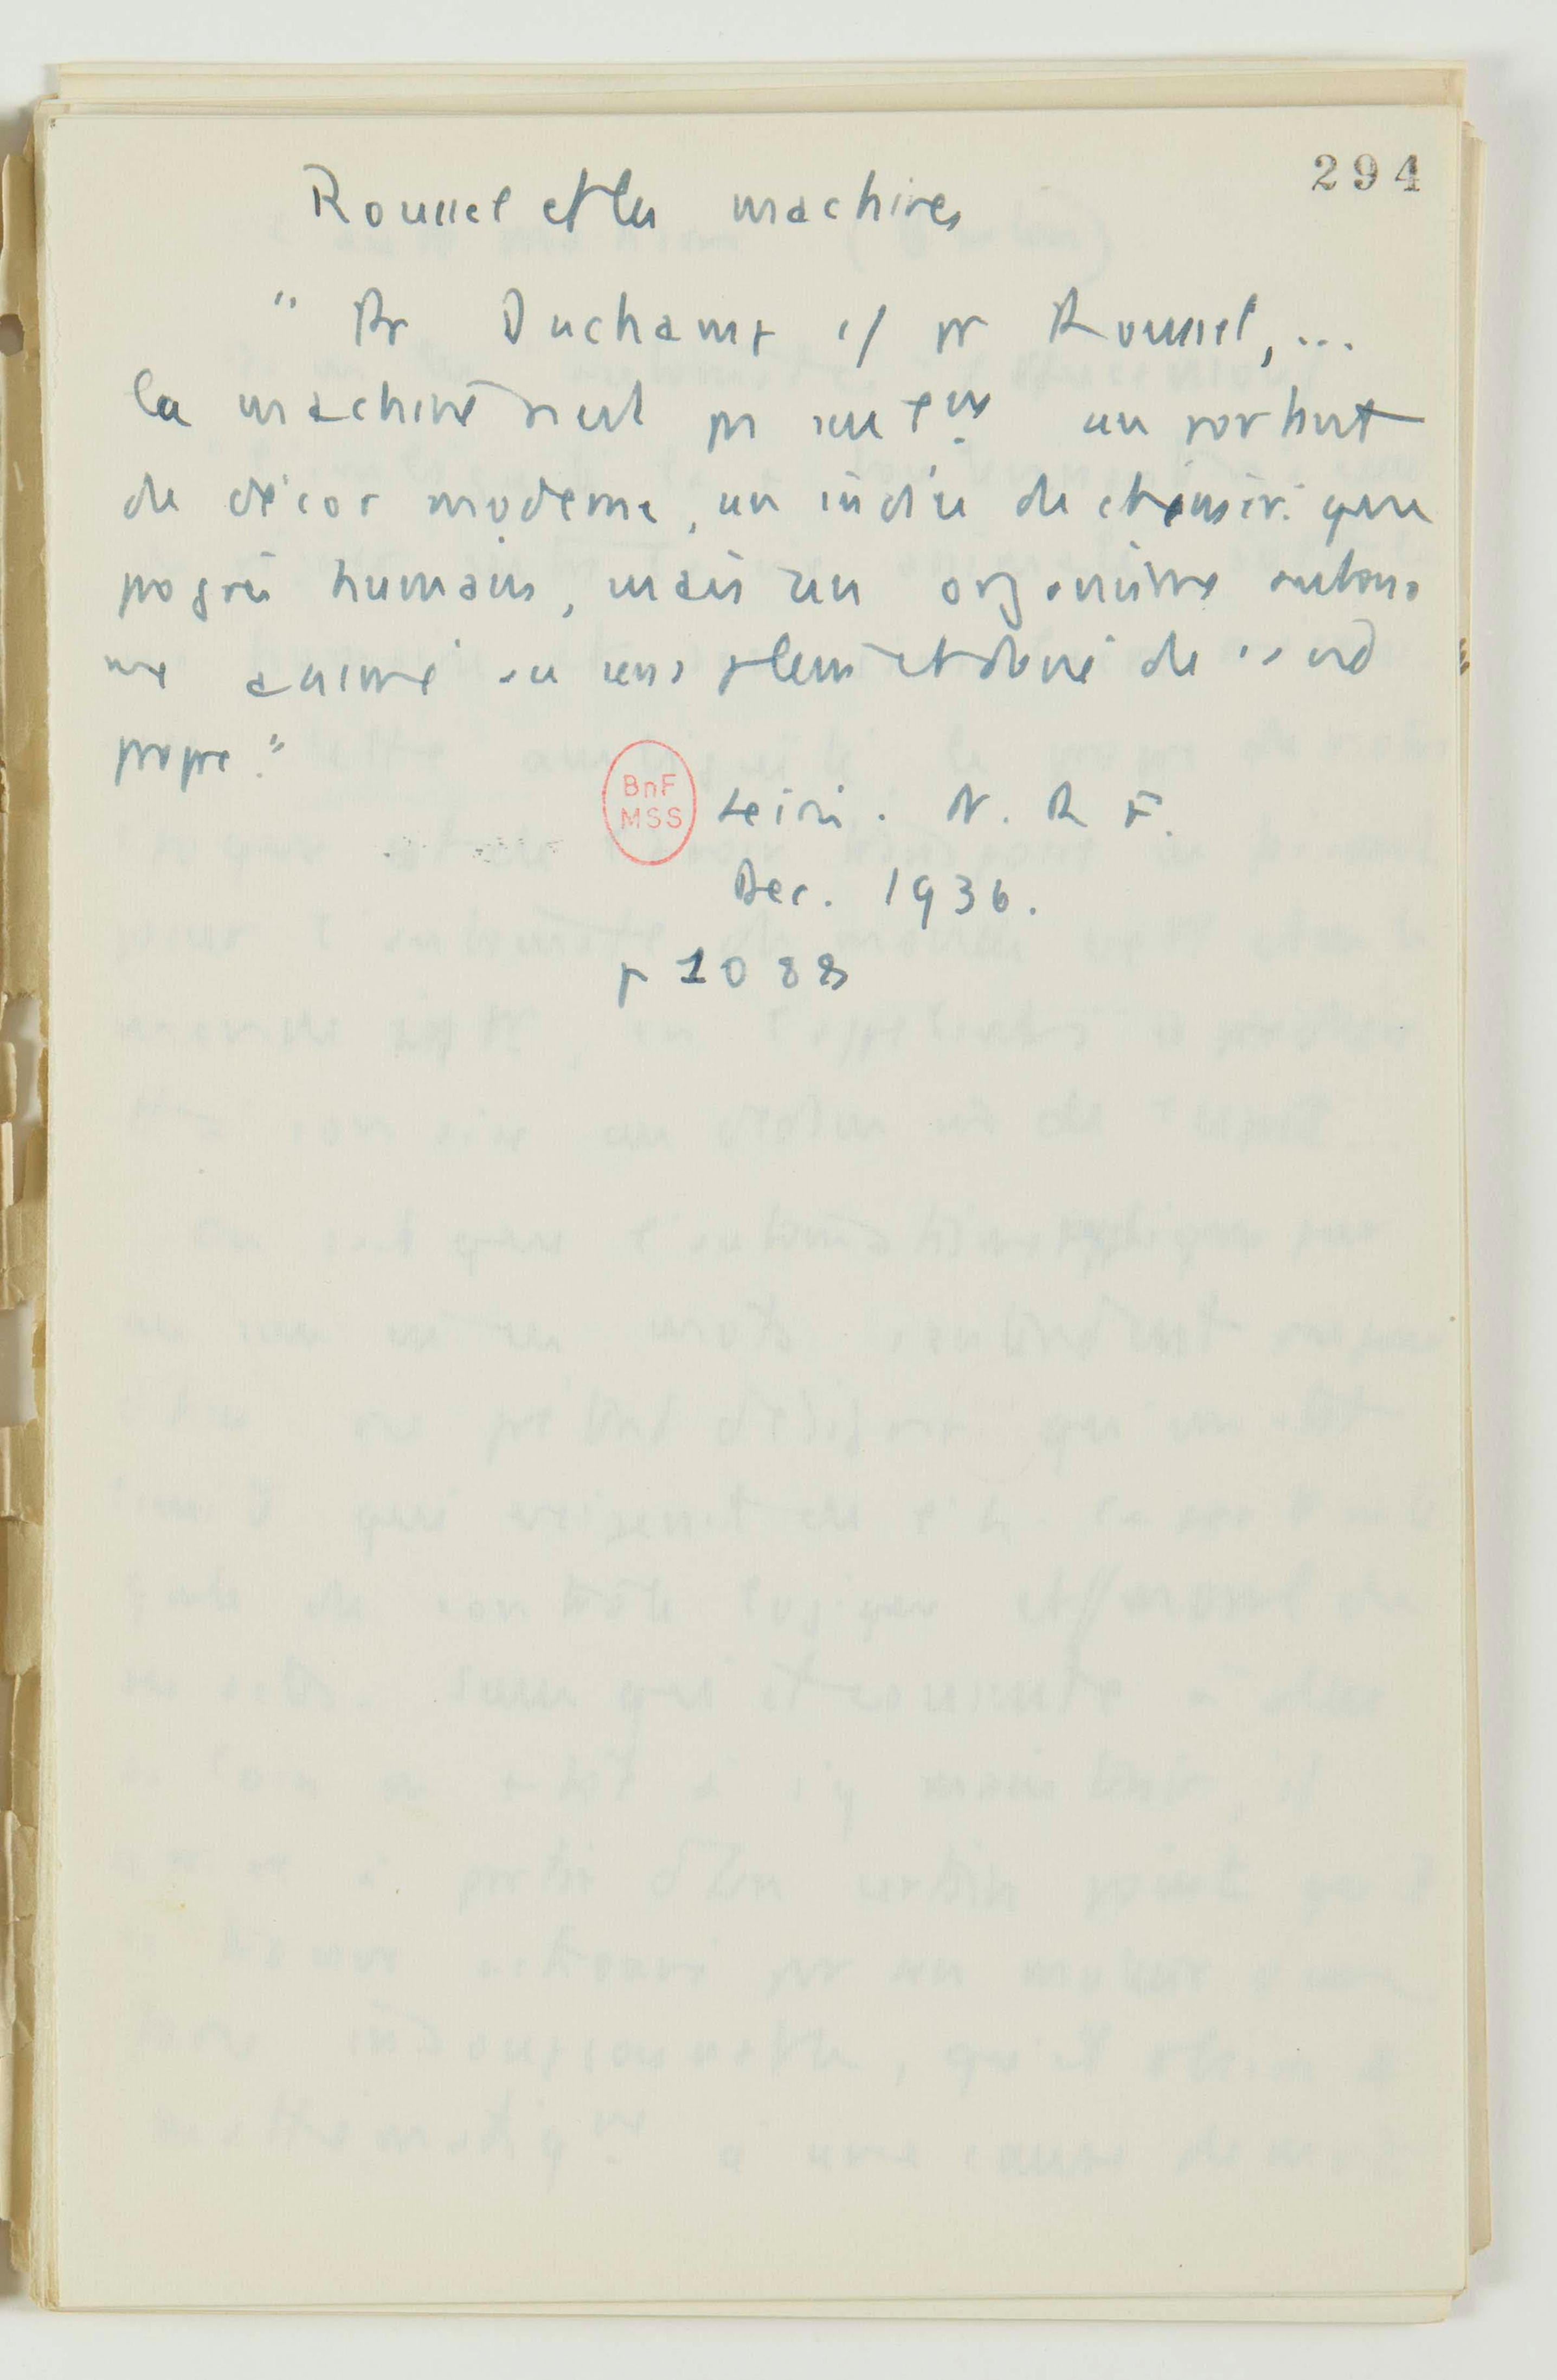 294
Roussel et les machines
" Pr Duchamp c/ pr Roussel, ...
la machine n'est pr seul.t un portrait
de décor moderne, un indice de chimérique
progrès humain, mais un organisme autono
me animé au sens plein et doué de sa vie
propre."
BnF
MSS
Leiris. N. R F.
Dec. 1936.
p 1088